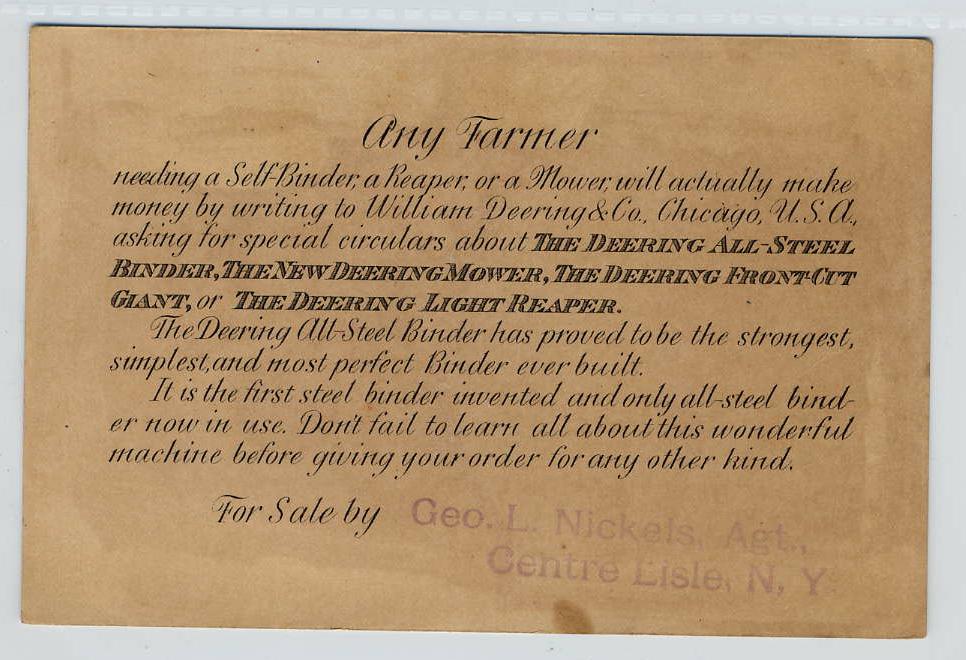 Any Farmer
needing a Self-Binder, a Reaper, or a Mower, will actually make
money by writing to William Deering & Co., Chicago, U.S.A.,
asking for special circulars about THE DEERING ALL-STEEL
BINDER, THE NEW DEERING MOWER, THE DEERING FRONT-CUT
GIANT, or THE DEERING LIGHT REAPER.
The Deering All-Steel Binder has proved to be the strongest,
simplest, and most perfect Binder ever built.
It is the first steel binder invented and only all-steel bind-
er now in use. Don't fail to learn all about this wonderful
machine before giving your order for any other kind.
For Sale by Geo. L. Nickels, Agt.,
Centre Lisle, N, Y.